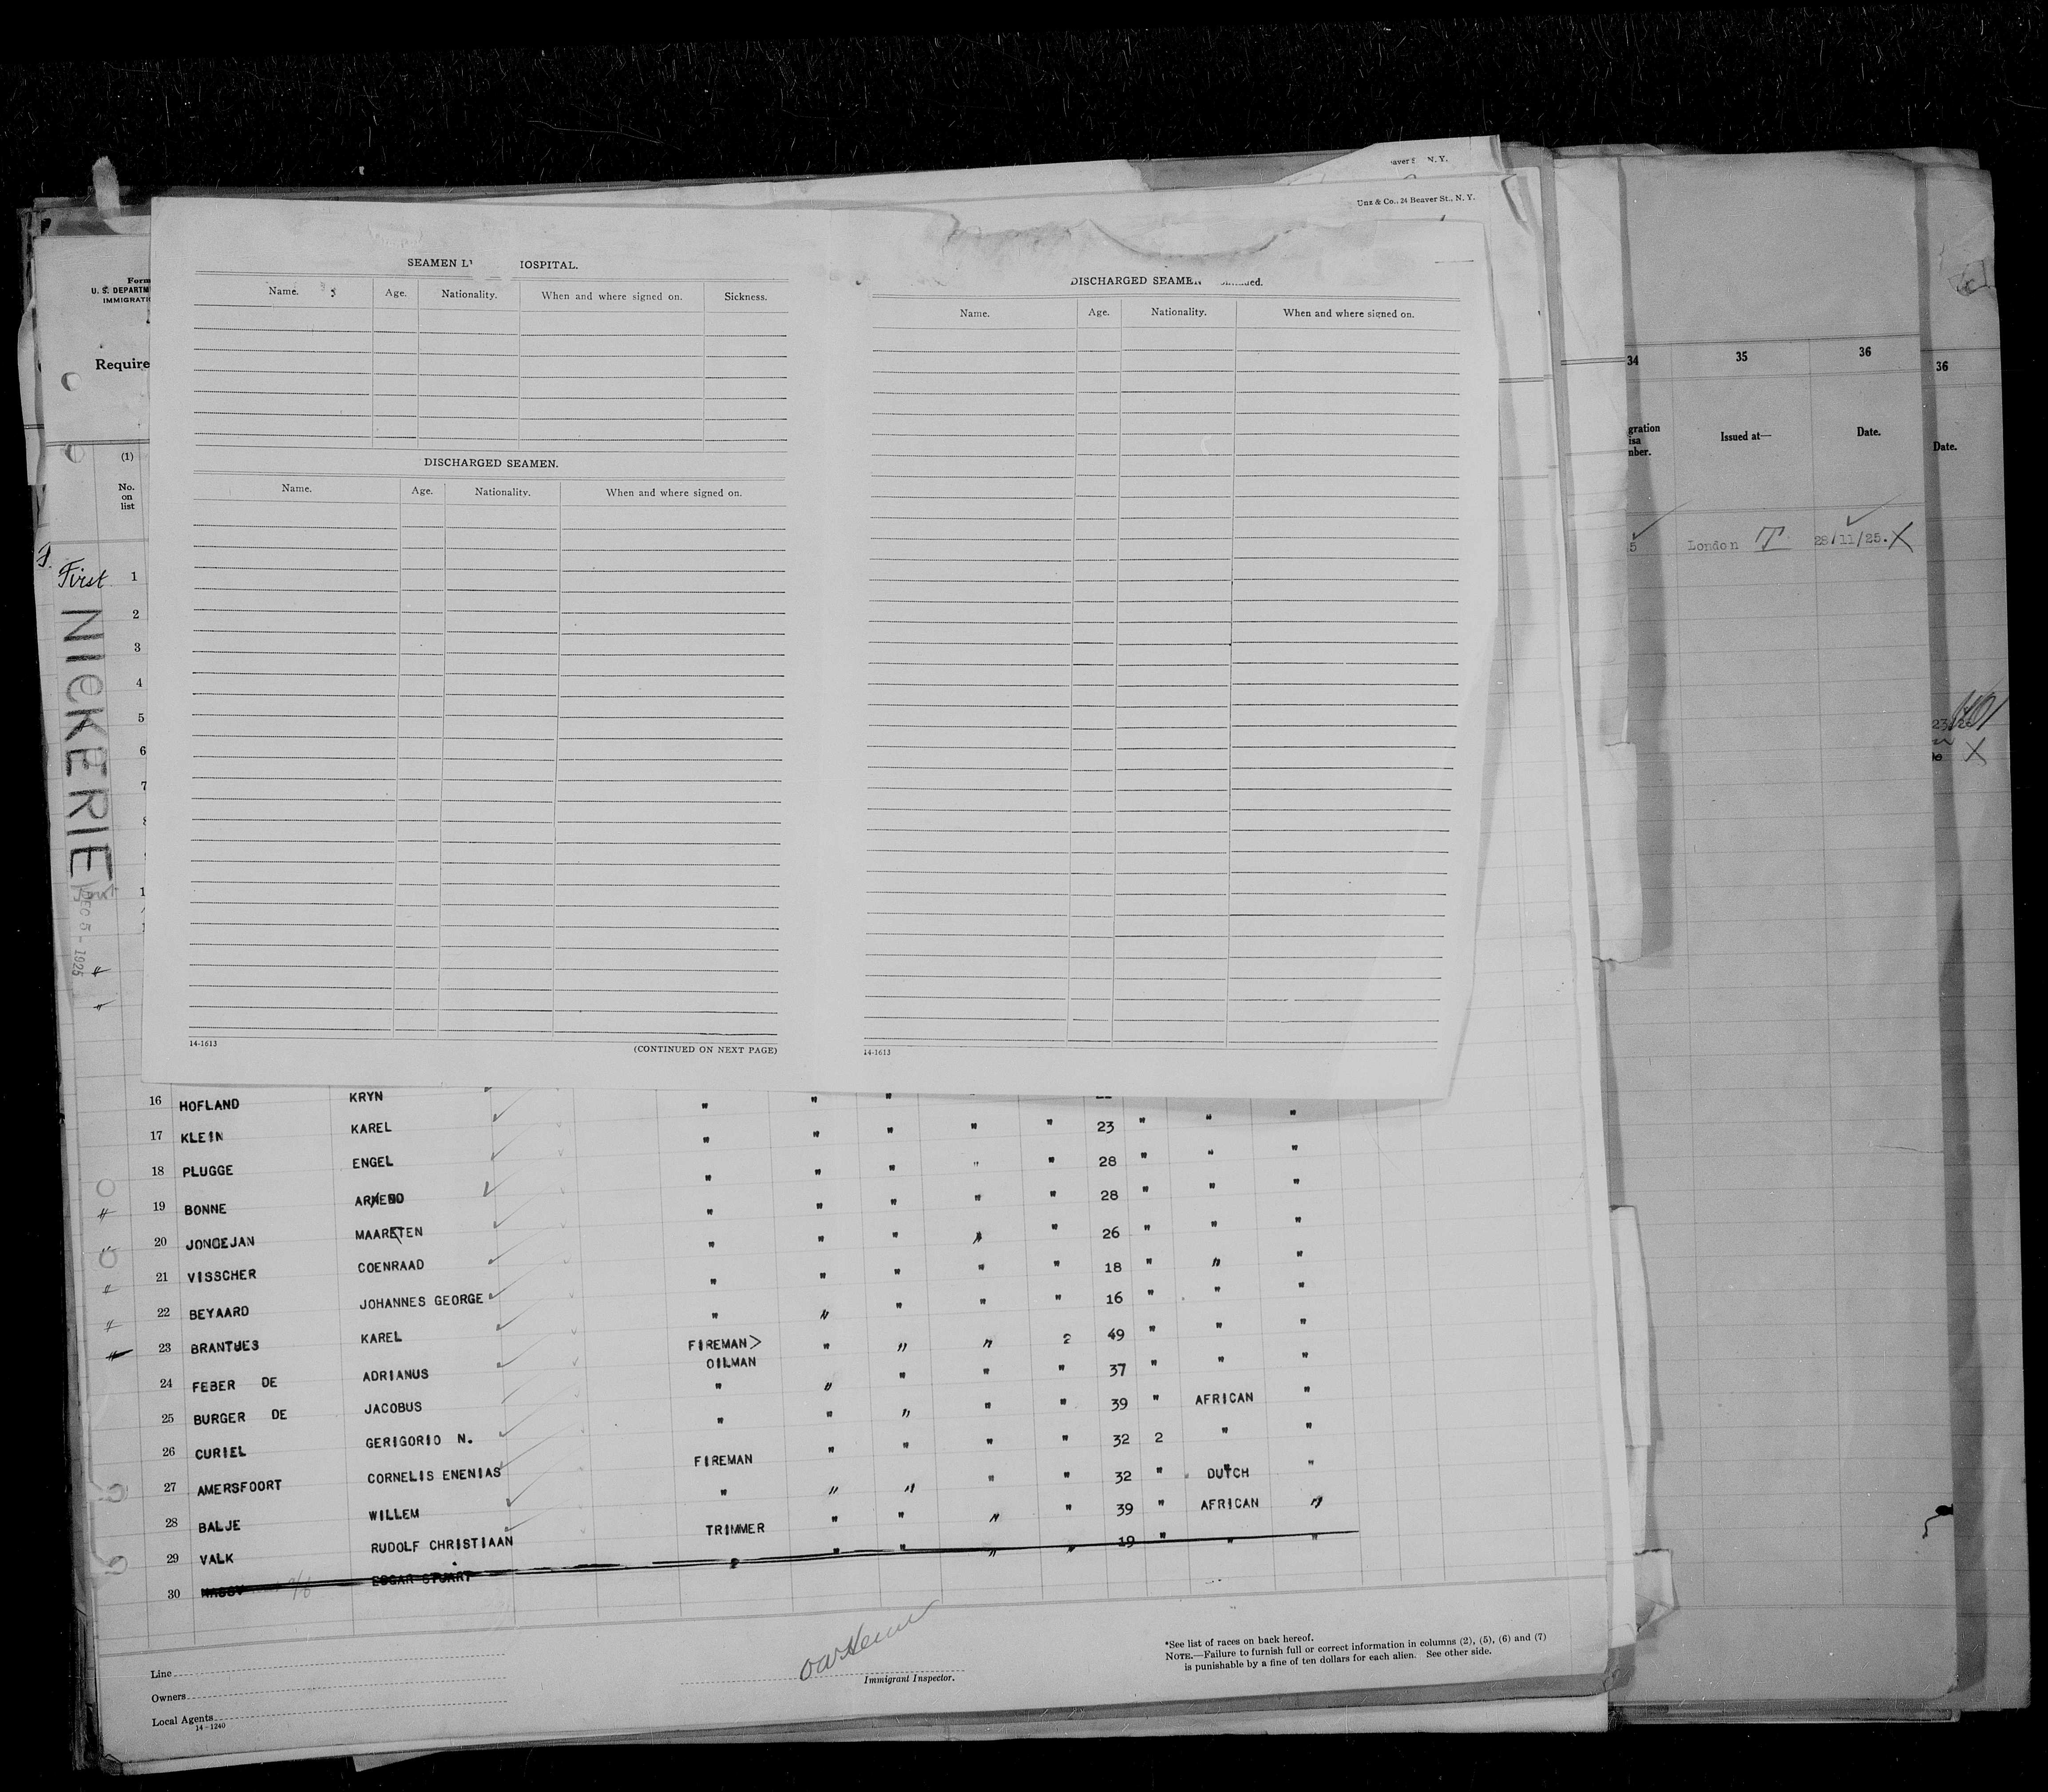 aver S N. Y.
Unz & Co., 24 Beaver St., N. Y.
Form
U. S. DEPARTM
IMMIGRATI
Require
(1)
No.
on
list
First 1
2
3
4
5
6
7
NICKERIE
DEC 5 - 1925
SEAMEN L OSPITAL.
Name. Age. Nationality. When and where signed on. Sickness.
DISCHARGED SEAMEN.
Name. Age. Nationality. When and where signed on.
14-1613
(CONTINUED ON NEXT PAGE)
DISCHARGED SEAMEN
Name. Age. Nationality. When and where signed on.
14-1613
34 35 36
gration
isa
nber.
Issued at—
Date.
5 London T 28/11/25. X
36
Date.
X
16 HOFLAND KRYN " " "
17 KLEIN KAREL " " " " " 23 " " "
18 PLUGGE ENGEL " " " " " 28 " " "
19 BONNE " " " " " 28 " " "
20 JONGEJAN " " " " " 26 " " "
21 VISSCHER COENRAAD " " " " " 18 " " "
22 BEYAARD JOHANNES GEORGE " " " " " 16 " " "
23 BRANTJES KAREL FIREMAN> " " " 2 49 " " "
OILMAN
24 FEBER DE ADRIANUS " " " " " 37 " " "
25 BURGER DE JACOBUS " " " " " 39 " AFRICAN "
26 CURIEL GERIGORIO N. FIREMAN " " " " 32 2 " "
27 AMERSFOORT CORNELIS ENENIAS " " " " " 32 " DUTCH "
28 BALJE WILLEM TRIMMER " " " " 39 " AFRICAN "
29 VALK RUDOLF CHRISTIAAN " " " " " 19 " " "
30 EDGAR STUART
Line
Owners
Local Agents
14-1240
Immigrant Inspector.
*See list of races on back hereof.
NOTE.—Failure to furnish full or correct information in columns (2), (5), (6) and (7)
is punishable by a fine of ten dollars for each alien. See other side.